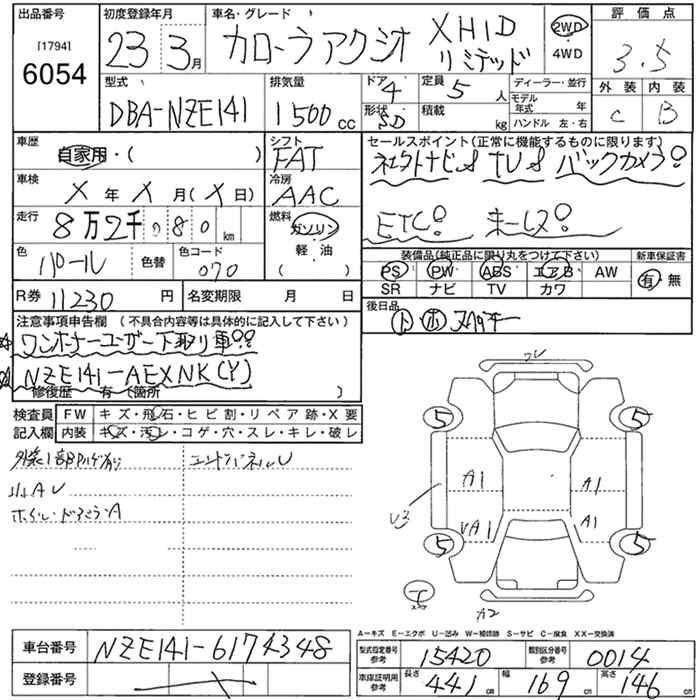 出品番号 初度登録年月 車名・グレード 評価点
[1794]
6054
23 3月 カローラアクシオ XHID リミテッド 2WD 4WD 3.5
外装 内装
C B
型式 排気量 ドア 定員 ディーラー・並行
DBA-NZE141 1500cc 4 5人 モデル年式 年
形状 積載 ハンドル 左・右
SD kg
車歴 シフト セールスポイント(正常に機能するものに限ります)
自家用・( ) FAT
TV バックカメラ
車検 冷房
X年X月(X日) AAC
走行 燃料 ETC
8万2千080km ガソリン 軽油 ( )
色 色替 色コード 装備品(純正品に限り丸をつけて下さい) 新車保証書
パール 070 PS PW ABS エアB AW 有・無
SR ナビ TV カワ
R券 11230円 名変期限 月 日 後日品
注意事項申告欄(不具合内容等は具体的に記入して下さい)
ワンオーナーユーザー下取り車
NZE141-AEXNK(Y)
修復歴 有(箇所 )
検査員記入欄 FW キズ・飛石・ヒビ割・リペア跡・X要
内装 キズ・汚レ・コゲ・穴・スレ・キレ・破レ
小AU
5 5
A1 A1
U3
A1
5 5
A2
A-キズ E-エクボ U-凹み W-補修跡 S-サビ C-腐食 XX-交換済
車台番号 NZE141-6174348
型式指定番号参考 15420 類別区分番号参考 0014
登録番号
車庫証明用参考 長さ 441cm 幅 169cm 高さ 146cm